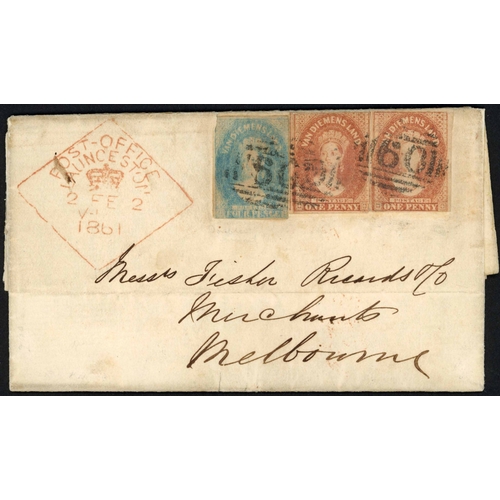 POST-OFFICE
LAUNCESTON
2 FE 2
1861
VAN DIEMENS LAND
FOUR PENCE
VAN DIEMENS LAND
POSTAGE
ONE PENNY
VAN DIEMENS LAND
POSTAGE
ONE PENNY
60
60
Messrs Fisher Ricards &/o
Merchants
Melbourne